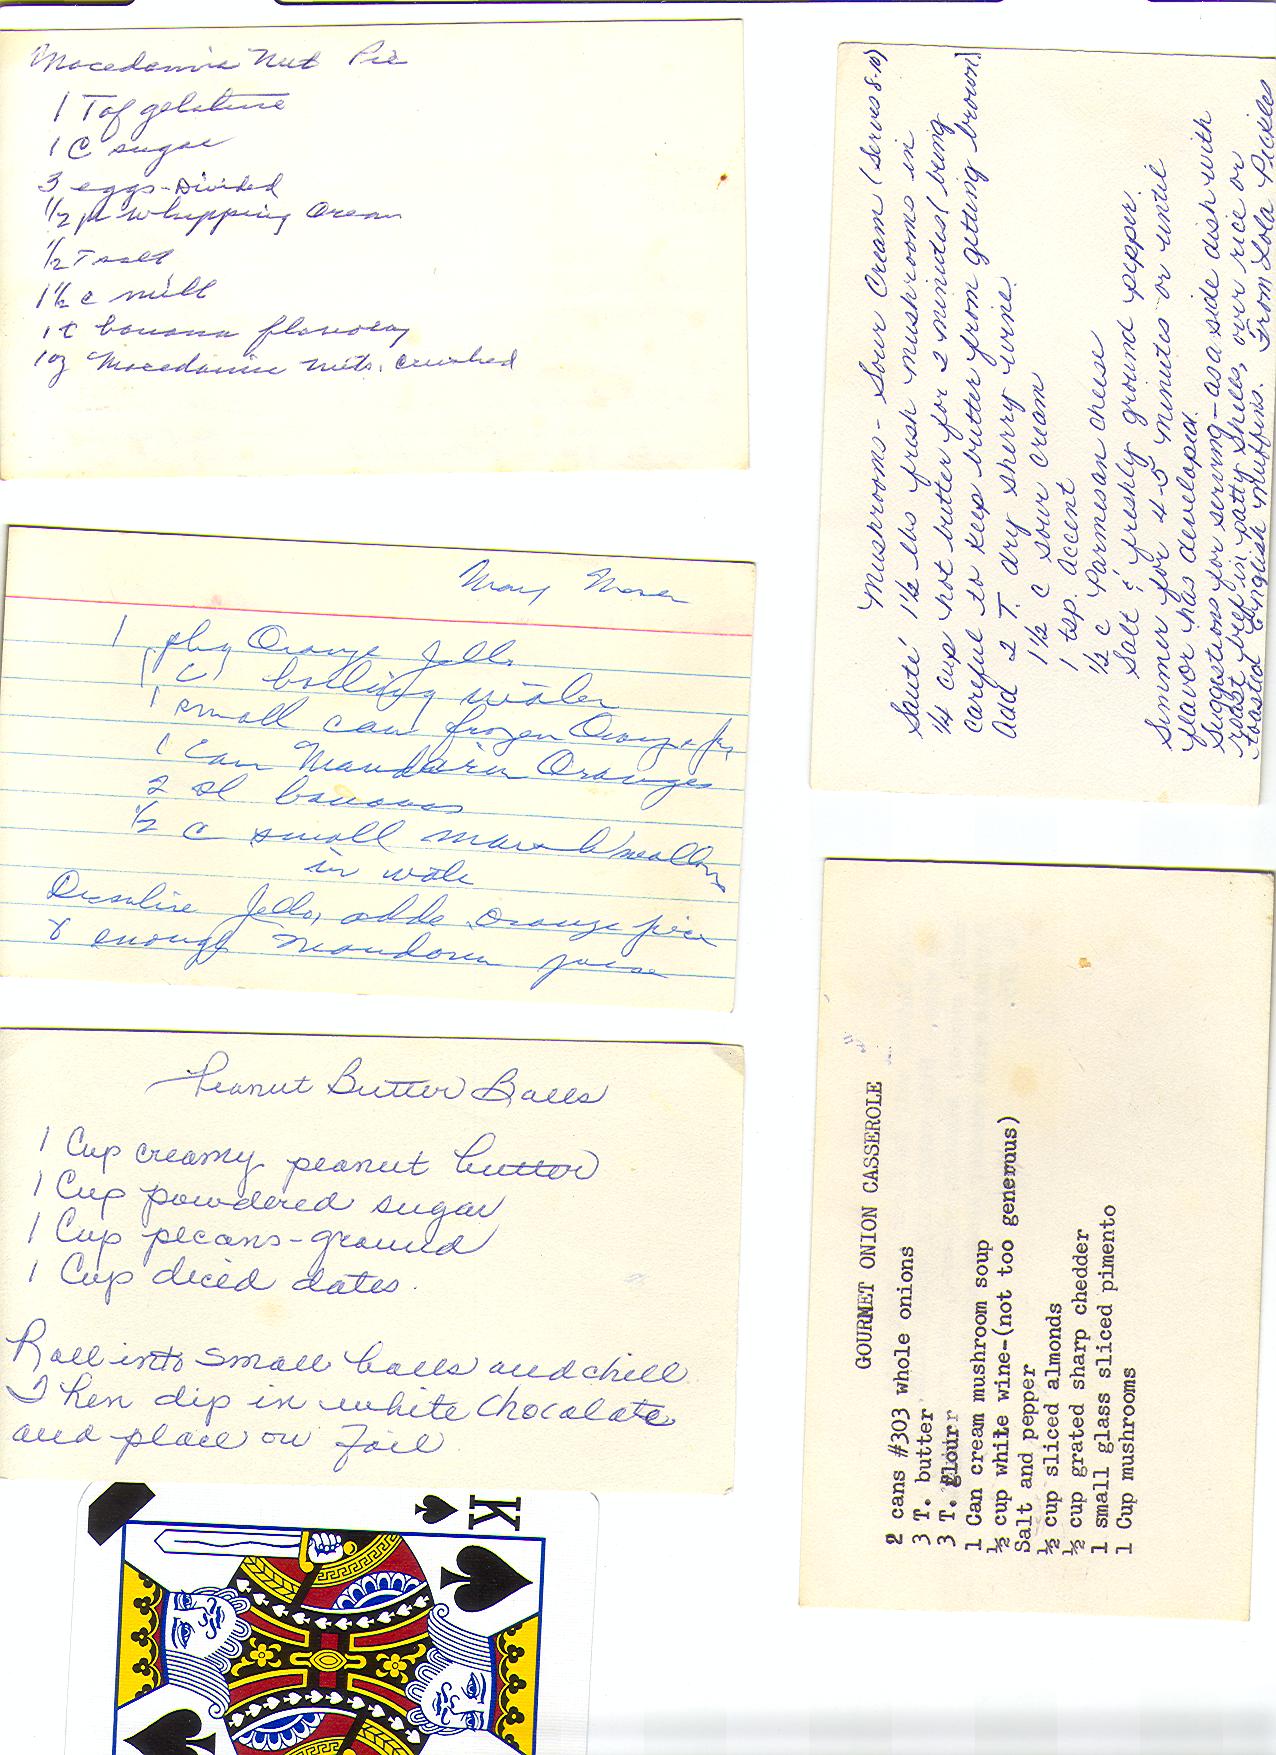 Macedamia Nut Pie
1 T of gelatine
1 C sugar
3 eggs-Divided
1/2 pt whipping Cream
1/2 T salt
1 1/2 c milk
1 t banana flavoring
1 oz Macedamia nuts, crushed
Mary
1 pkg Orange Jello
1 C boiling water
1 small can frozen Orange
1 Can Mandarin Oranges
2 sl bananas
1/2 c small marshmallows
in
Dissolve Jello, add orange juice
& enough Mandarin juice
Peanut Butter Balls
1 Cup creamy peanut butter
1 Cup powdered sugar
1 Cup pecans-ground
1 Cup diced dates.
Roll into small balls and chill
Then dip in white chocolate
and place on foil
K
Mushrooms - Sour Cream (serves 8-10)
Sauté 1 1/2 lbs fresh mushrooms in
1/4 cup hot butter for 2 minutes (being
careful to keep butter from getting brown)
Add 2 T. dry sherry wine
1 1/2 c sour cream
1 tsp. Accent
1/2 c Parmesan cheese
Salt & freshly ground pepper.
Simmer for 4-5 minutes or until
flavor has developed.
Suggestions for serving-as a side dish with
roast beef, in patty shells, over rice or
toasted English Muffins. From Lola Pickles
GOURMET ONION CASSEROLE
2 cans #303 whole onions
3 T. butter
3 T. glourr
1 Can cream mushroom soup
½ cup white wine-(not too generous)
Salt and pepper
½ cup sliced almonds
½ cup grated sharp chedder
1 small glass sliced pimento
1 Cup mushrooms